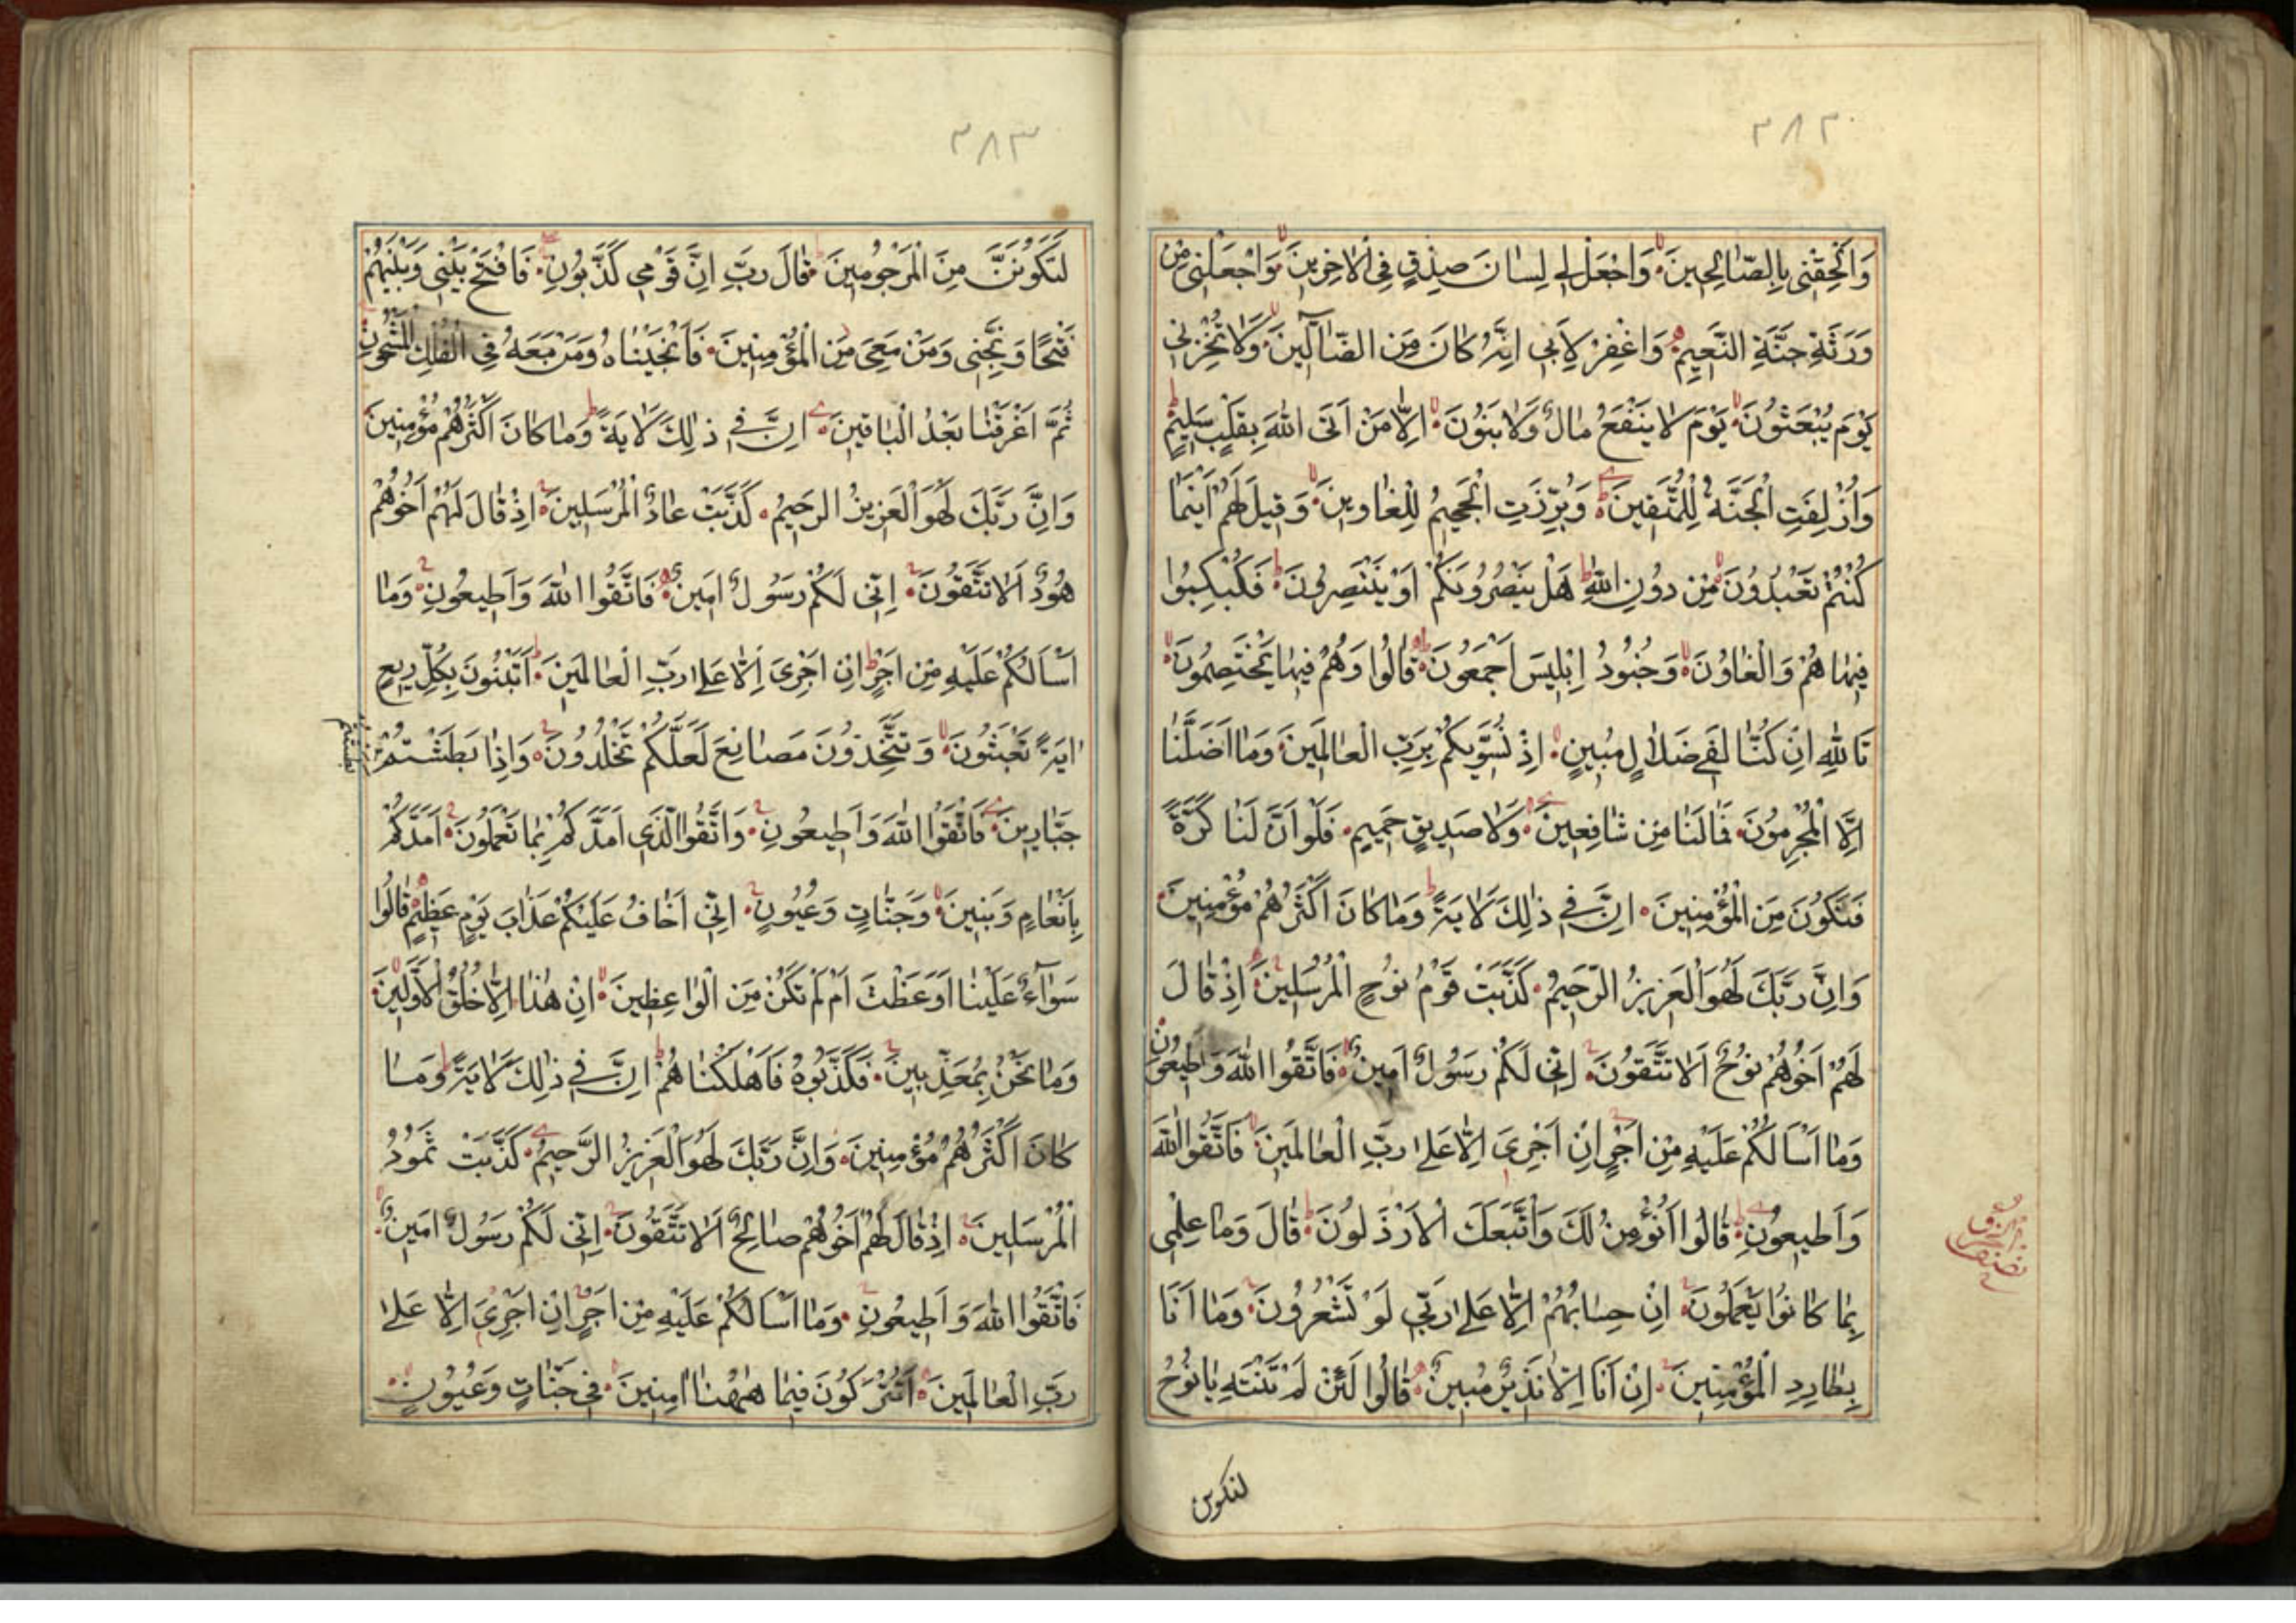 ٣٨٢
وَاَلْحِقْنِی بِالصَّالِحِینَ وَاجْعَل لِی لِسَانَ صِدْقٍ فِی الْاٰخِرِینَ وَاجْعَلْنِی مِنْ
وَرَثَةِ جَنَّةِ النَّعِیمِ وَاغْفِرْ لِاَبِی اِنَّهُ كَانَ مِنَ الضَّآلِّینَ وَلَا تُخْزِنِی
یَوْمَ یُبْعَثُونَ یَوْمَ لَا یَنْفَعُ مَالٌ وَلَا بَنُونَ اِلَّا مَنْ اَتَی اللّٰهَ بِقَلْبٍ سَلِیمٍ
وَاُزْلِفَتِ الْجَنَّةُ لِلْمُتَّقِینَ وَبُرِّزَتِ الْجَحِیمُ لِلْغَاوِینَ وَقِیلَ لَهُمْ اَیْنَمَا
كُنْتُمْ تَعْبُدُونَ مِنْ دُونِ اللّٰهِ هَلْ یَنْصُرُونَكُمْ اَوْ یَنْتَصِرُونَ فَكُبْكِبُوا
فِیهَا هُمْ وَالْغَاوُنَ وَجُنُودُ اِبْلِیسَ اَجْمَعُونَ قَالُوا وَهُمْ فِیهَا یَخْتَصِمُونَ
تَاللّٰهِ اِنْ كُنَّا لَفِی ضَلَالٍ مُبِینٍ اِذْ نُسَوِّیكُمْ بِرَبِّ الْعَالَمِینَ وَمَا اَضَلَّنَا
اِلَّا الْمُجْرِمُونَ فَمَا لَنَا مِنْ شَافِعِینَ وَلَا صَدِیقٍ حَمِیمٍ فَلَوْ اَنَّ لَنَا كَرَّةً
فَنَكُونَ مِنَ الْمُؤْمِنِینَ اِنَّ فِی ذٰلِكَ لَاٰیَةً وَمَا كَانَ اَكْثَرُهُمْ مُؤْمِنِینَ
وَاِنَّ رَبَّكَ لَهُوَ الْعَزِیزُ الرَّحِیمُ كَذَّبَتْ قَوْمُ نُوحٍ الْمُرْسَلِینَ اِذْ قَالَ
لَهُمْ اَخُوهُمْ نُوحٌ اَلَا تَتَّقُونَ اِنِّی لَكُمْ رَسُولٌ اَمِینٌ فَاتَّقُوا اللّٰهَ وَاَطِیعُونِ
وَمَا اَسْاَلُكُمْ عَلَیْهِ مِنْ اَجْرٍ اِنْ اَجْرِیَ اِلَّا عَلٰی رَبِّ الْعَالَمِینَ فَاتَّقُوا اللّٰهَ
وَاَطِیعُونِ قَالُوا اَنُؤْمِنُ لَكَ وَاتَّبَعَكَ الْاَرْذَلُونَ قَالَ وَمَا عِلْمِی
بِمَا كَانُوا یَعْمَلُونَ اِنْ حِسَابُهُمْ اِلَّا عَلٰی رَبِّی لَوْ تَشْعُرُونَ وَمَا اَنَا
بِطَارِدِ الْمُؤْمِنِینَ اِنْ اَنَا اِلَّا نَذِیرٌ مُبِینٌ قَالُوا لَئِنْ لَمْ تَنْتَهِ یَا نُوحُ
لتكونن
٣٨٣
لَتَكُونَنَّ مِنَ الْمَرْجُومِینَ قَالَ رَبِّ اِنَّ قَوْمِی كَذَّبُونِ فَافْتَحْ بَیْنِی وَبَیْنَهُمْ
فَتْحًا وَنَجِّنِی وَمَنْ مَعِیَ مِنَ الْمُؤْمِنِینَ فَاَنْجَیْنَاهُ وَمَنْ مَعَهُ فِی الْفُلْكِ الْمَشْحُونِ
ثُمَّ اَغْرَقْنَا بَعْدُ الْبَاقِینَ اِنَّ فِی ذٰلِكَ لَاٰیَةً وَمَا كَانَ اَكْثَرُهُمْ مُؤْمِنِینَ
وَاِنَّ رَبَّكَ لَهُوَ الْعَزِیزُ الرَّحِیمُ كَذَّبَتْ عَادٌ الْمُرْسَلِینَ اِذْ قَالَ لَهُمْ اَخُوهُمْ
هُودٌ اَلَا تَتَّقُونَ اِنِّی لَكُمْ رَسُولٌ اَمِینٌ فَاتَّقُوا اللّٰهَ وَاَطِیعُونِ وَمَا
اَسْاَلُكُمْ عَلَیْهِ مِنْ اَجْرٍ اِنْ اَجْرِیَ اِلَّا عَلٰی رَبِّ الْعَالَمِینَ اَتَبْنُونَ بِكُلِّ رِیعٍ
اٰیَةً تَعْبَثُونَ وَتَتَّخِذُونَ مَصَانِعَ لَعَلَّكُمْ تَخْلُدُونَ وَاِذَا بَطَشْتُمْ
جَبَّارِینَ فَاتَّقُوا اللّٰهَ وَاَطِیعُونِ وَاتَّقُوا الَّذِی اَمَدَّكُمْ بِمَا تَعْلَمُونَ اَمَدَّكُمْ
بِاَنْعَامٍ وَبَنِینَ وَجَنَّاتٍ وَعُیُونٍ اِنِّی اَخَافُ عَلَیْكُمْ عَذَابَ یَوْمٍ عَظِیمٍ قَالُوا
سَوَآءٌ عَلَیْنَا اَوَعَظْتَ اَمْ لَمْ تَكُنْ مِنَ الْوَاعِظِینَ اِنْ هٰذَا اِلَّا خُلُقُ الْاَوَّلِینَ
وَمَا نَحْنُ بِمُعَذَّبِینَ فَكَذَّبُوهُ فَاَهْلَكْنَاهُمْ اِنَّ فِی ذٰلِكَ لَاٰیَةً وَمَا
كَانَ اَكْثَرُهُمْ مُؤْمِنِینَ وَاِنَّ رَبَّكَ لَهُوَ الْعَزِیزُ الرَّحِیمُ كَذَّبَتْ ثَمُودُ
الْمُرْسَلِینَ اِذْ قَالَ لَهُمْ اَخُوهُمْ صَالِحٌ اَلَا تَتَّقُونَ اِنِّی لَكُمْ رَسُولٌ اَمِینٌ
فَاتَّقُوا اللّٰهَ وَاَطِیعُونِ وَمَا اَسْاَلُكُمْ عَلَیْهِ مِنْ اَجْرٍ اِنْ اَجْرِیَ اِلَّا عَلٰی
رَبِّ الْعَالَمِینَ اَتُتْرَكُونَ فِیمَا هٰهُنَا اٰمِنِینَ فِی جَنَّاتٍ وَعُیُونٍ